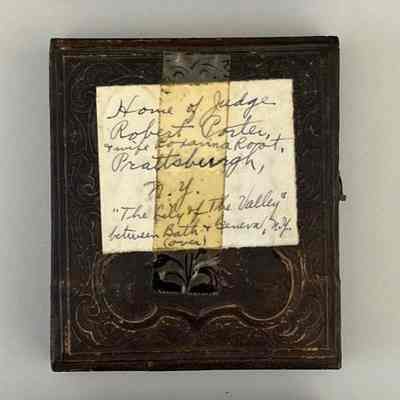 Home of Judge
Robert Porter,
& wife Roxanna Root,
Prattsburgh,
N.Y.
"The Lily of The Valley"
between Bath & Geneva, N.Y.
(over)